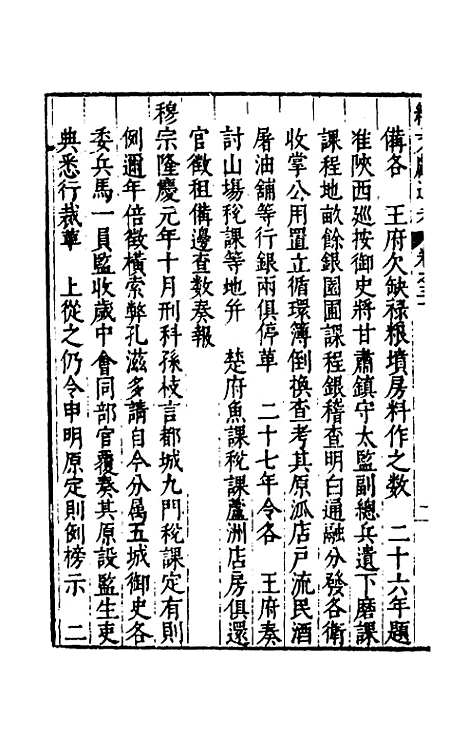 備各　王府欠缺祿粮墳房料作之數　二十六年題
准陝西廵按御史將甘肅鎮守太監副總兵遺下磨課
課程地畝餘銀園圃課程銀稽查明白通融分發各衛
收掌公用置立循環簿倒換查考其原派店戶流民酒
屠油舖等行銀兩俱停革　二十七年令各　王府奏
討山塲稅課等地并　楚府魚課稅課蘆洲店房俱還
官徵租備邊查數奏報
穆宗隆慶元年十月刑科孫枝言都城九門稅課定有則
例邇年倍徵橫索弊孔滋多請自今分屬五城御史各
委兵馬一員監收歲中會同部官覆奏其原設監生吏
典悉行裁革　上從之仍令申明原定則例榜示　二